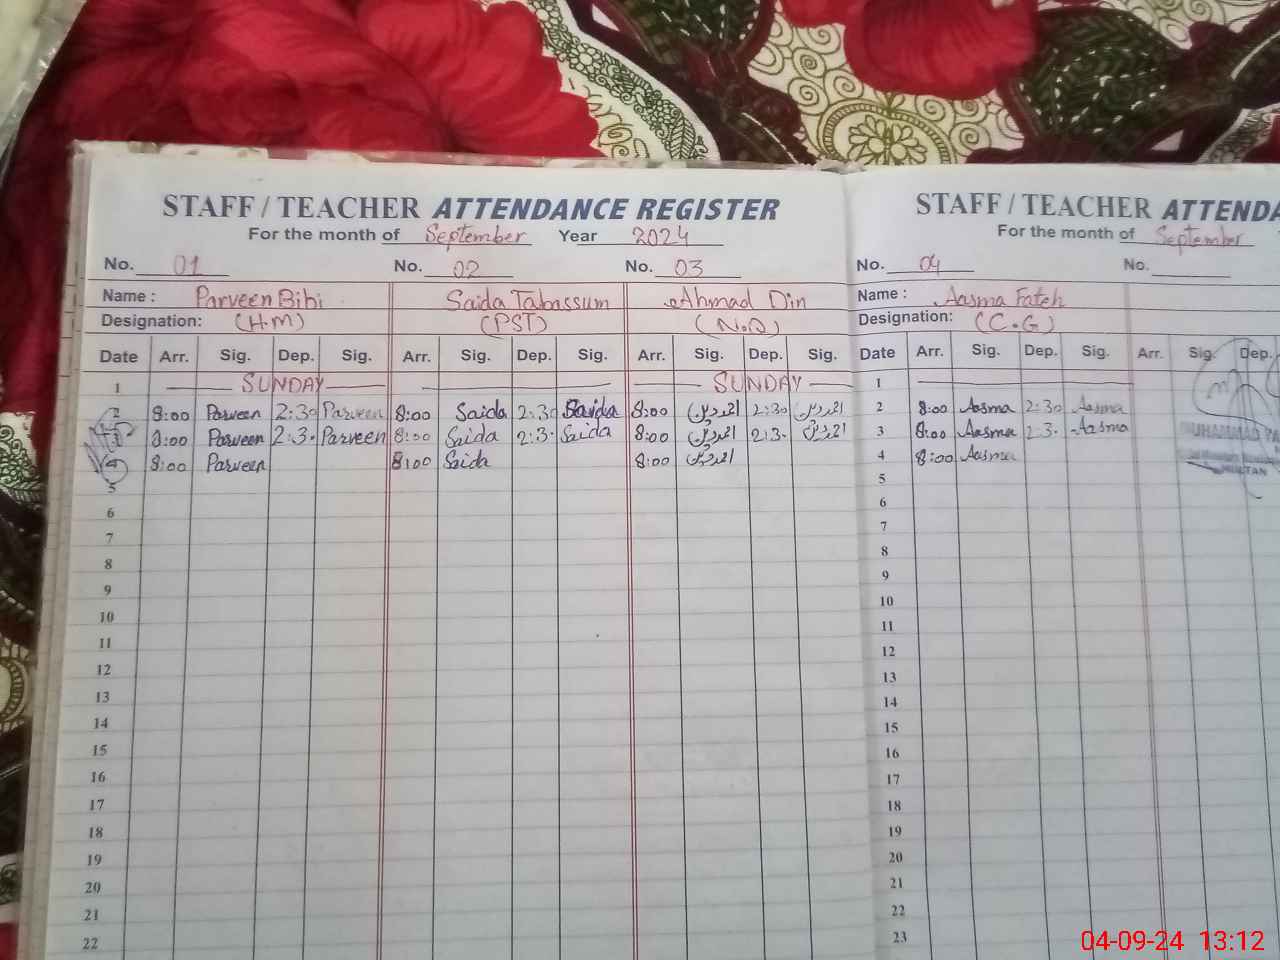 STAFF / TEACHER ATTENDANCE REGISTER
For the month of September Year 2024
No. 01 No. 02 No. 03
Name : Parveen Bibi Saida Tabassum Ahmad Din
Designation: (H.M) (PST) (N.Q)
Date Arr. Sig. Dep. Sig. Arr. Sig. Dep. Sig. Arr. Sig. Dep. Sig.
1 SUNDAY SUNDAY
2 8:00 Parveen 2:30 Parveen 8:00 Saida 2:30 Saida 8:00 احمد دین 2:30 احمد دین
3 8:00 Parveen 2:3. Parveen 8:00 Saida 2:3. Saida 8:00 احمد دین 2:3. احمد دین
4 8:00 Parveen 8:00 Saida 8:00 احمد دین
5
6
7
8
9
10
11
12
13
14
15
16
17
18
19
20
21
22
STAFF / TEACHER ATTENDA
For the month of September
No. 04 No.
Name : Aasma Fateh
Designation: (C.G)
Date Arr. Sig. Dep. Sig. Arr. Sig. Dep.
1
2 8:00 Aasma 2:30 Aasma
3 8:00 Aasma 2:3. Aasma
MUHAMMAD
4 8:00 Aasma
MULTAN
5
6
7
8
9
10
11
12
13
14
15
16
17
18
19
20
21
22
23
04-09-24 13:12